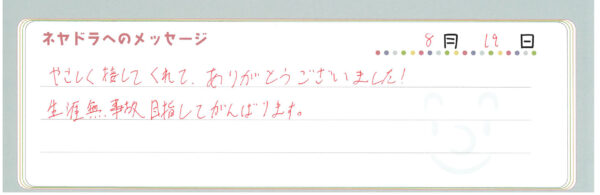 ネヤドラへのメッセージ
8月 19日
やさしく接してくれて、ありがとうございました!
生涯無事故目指してがんばります。